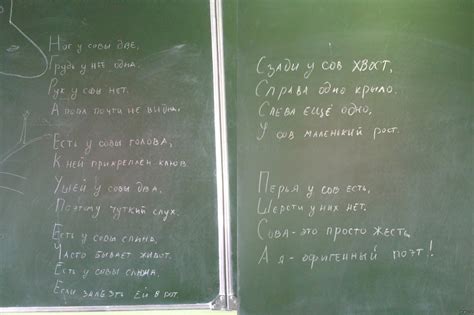 Ног у совы две,
Грудь у неё одна.
Рук у совы нет.
А попа почти не видна.
Есть у совы голова,
К ней прикреплён клюв.
Ушей у совы два,
Поэтому чуткий слух.
Есть у совы спина,
Часто бывает живот.
Есть у совы слюна,
Если залезть ей в рот.
Сзади у сов хвост,
Справа одно крыло.
Слева ещё одно,
У сов маленький рост.
Перья у сов есть,
Шерсти у них нет.
Сова - это просто жесть,
А я - офигенный поэт!